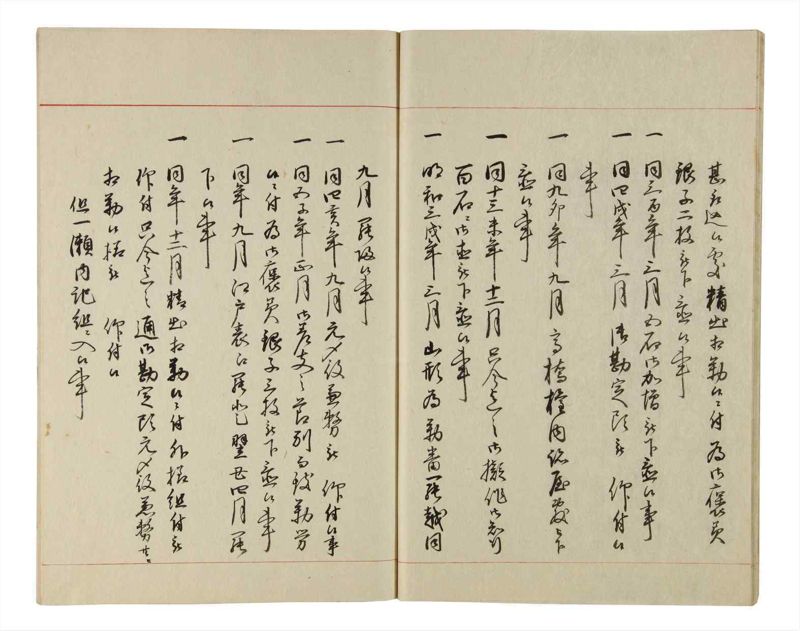 甚取込候処精出相勤候ニ付為御褒美
銀子二枚被下置候事
一 同三酉年三月五石御加増被下置候事
一 同四戌年三月御勘定頭被 仰付候
事
一 同九卯年九月高橋権内
置候事
一 同十三未年十二月只今迄之御擬作御知行
百石ニ御直被下置候事
一 明和三戌年三月山形為勤番罷越同
九月罷帰候事
一 同四亥年九月元〆役兼勤被 仰付候事
一 同五子年正月
候ニ付為御褒美銀子三枚被下置候事
一 同年九月江戸表江罷登翌丑四月罷
下候事
一 同年十二月精出相勤候ニ付外様組付被
仰付只今迄之通御勘定頭元〆役兼勤
相勤候様被 仰付候
但一瀬内記組ニ入候事